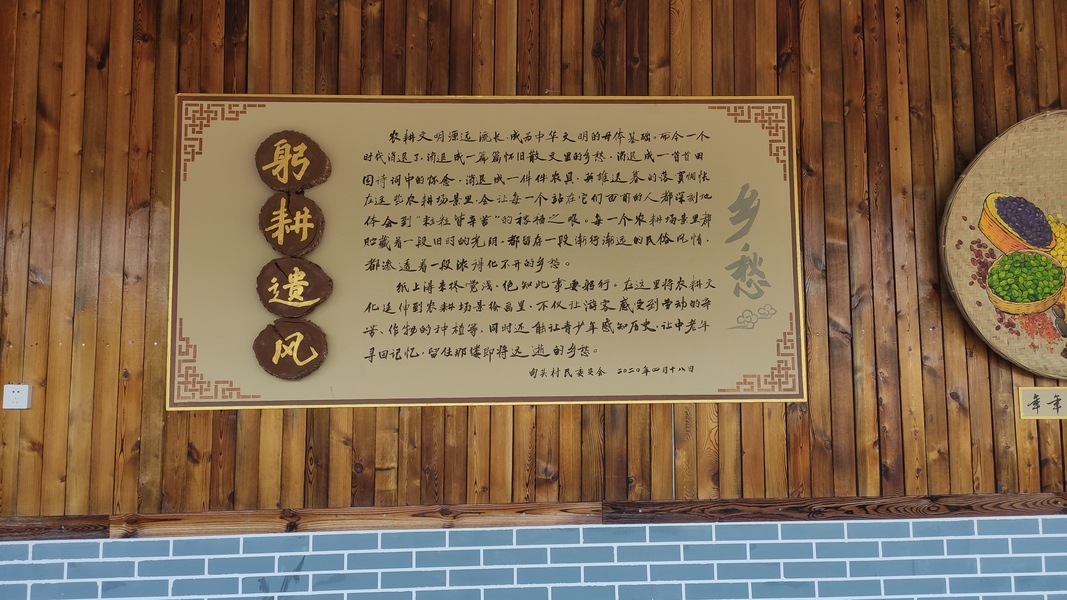 躬
耕
遗
风
农耕文明源远流长，成为中华文明的母体基础。而今一个
时代消退了，消退成一篇篇怀旧散文里的乡愁，消退成一首首田
园诗词中的怀念，消退成一件件农具，英雄迟暮的落寞惆怅
在这些农耕场景里，会让每一个站在它们面前的人都深刻地
体会到“粒粒皆辛苦”的稼穑之艰。每一个农耕场景里都
贮藏着一段旧时的光阴，都留存一段渐行渐远的民俗风情，
都渗透着一段浓得化不开的乡愁。
纸上得来终觉浅，绝知此事要躬行，在这里将农耕文
化延伸到农耕场景绘画里，不仅让游客感受到劳动的辛
苦、作物的种植等，同时还能让青少年感知历史，让中老年
寻回记忆，留住那缕即将远逝的乡愁。
村民委员会 2020年四月十八日
乡愁
年年